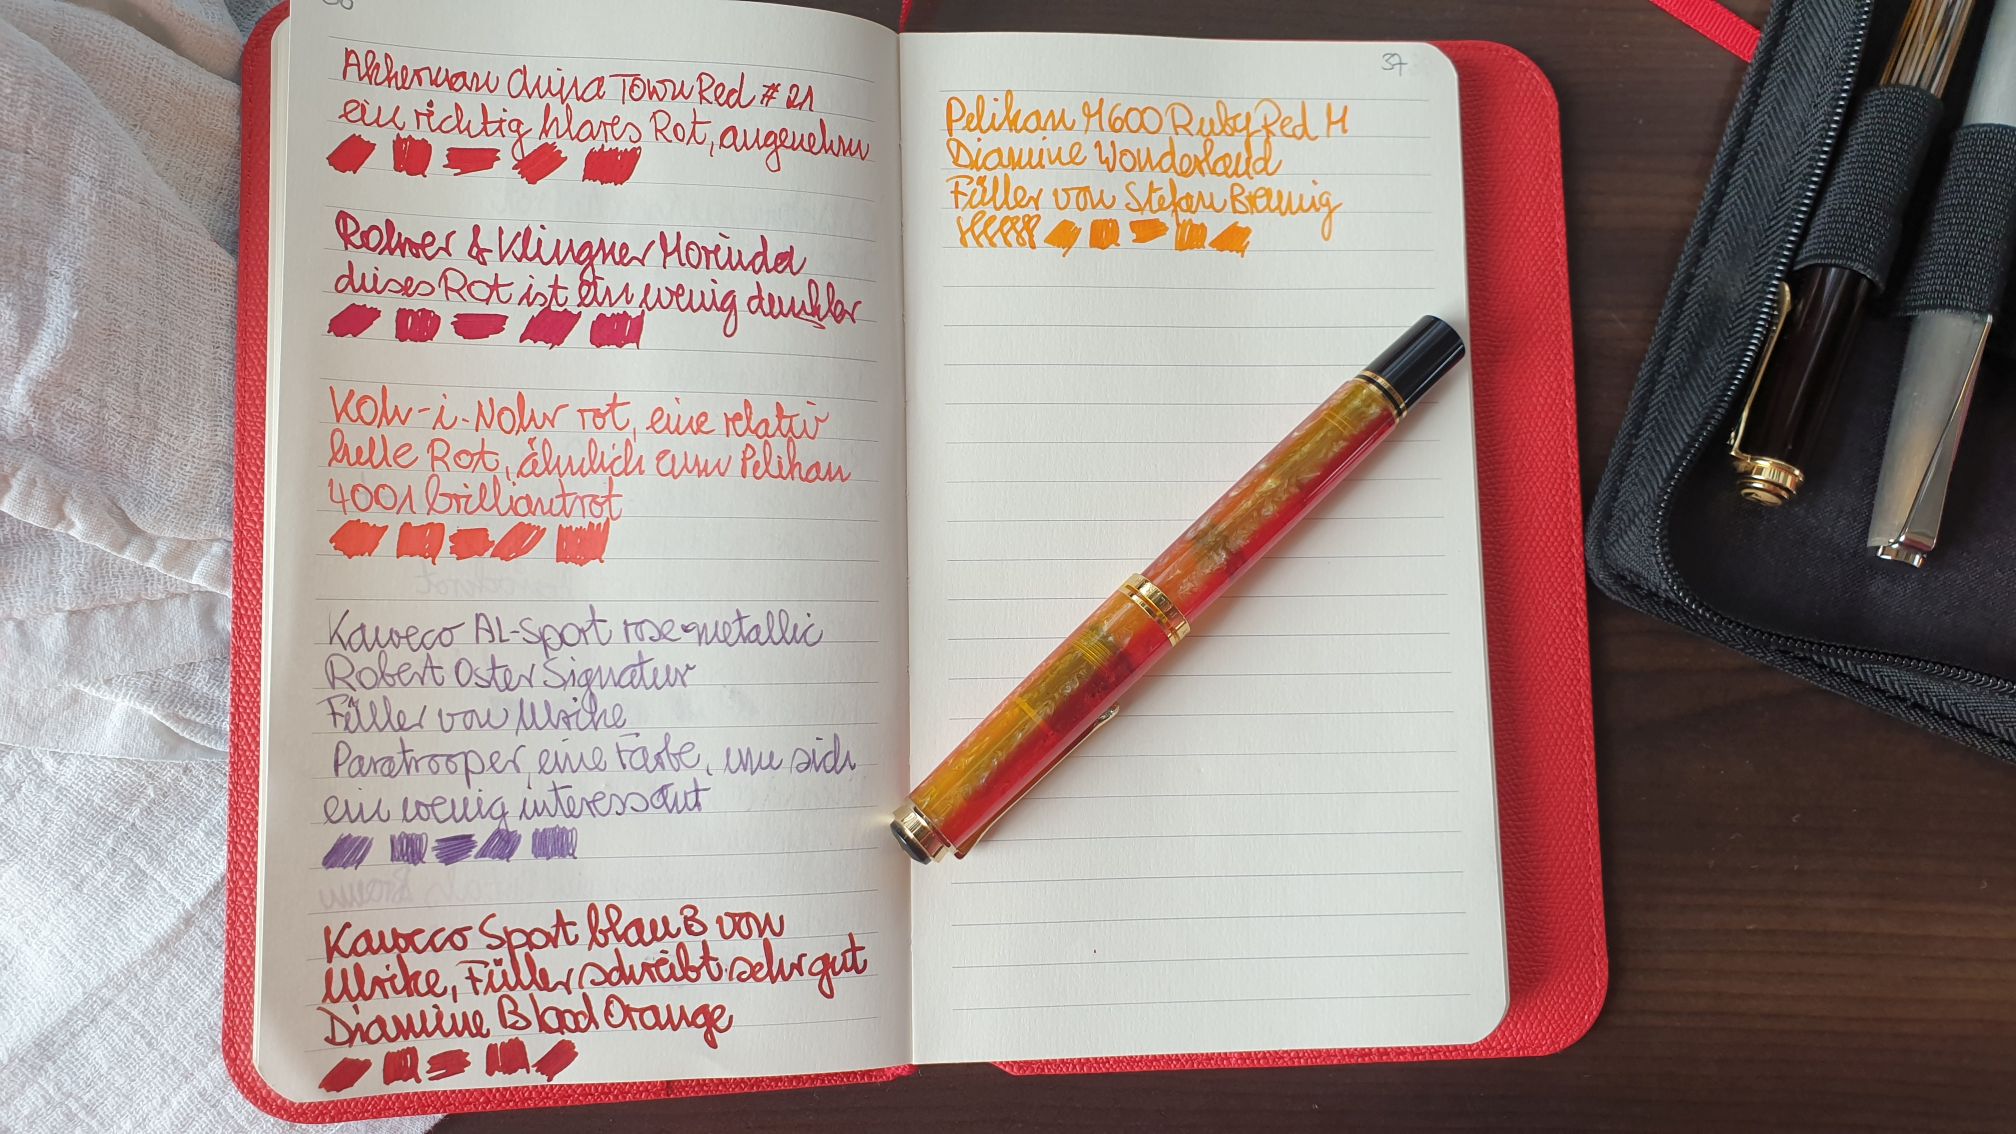 36
Akkerman China Town Red # 21
ein richtig klares Rot, angenehm
Rohrer & Klingner Morinda
dieses Rot ist ein wenig dunkler
Koh-i-Nohr rot, eine relativ
helle Rot, ähnlich zum Pelikan
4001 brilliantrot
Kaweco AL-Sport rose-metallic
Robert Oster Signatur
Füller von Ulrike
Paratrooper, eine Farbe, um sich
ein wenig interessant
Kaweco Sport blau B von
Ulrike, Füller schreibt sehr gut
Diamine Blood Orange
37
Pelikan M600 Ruby Red M
Diamine Wonderland
Füller von Stefan Brennig